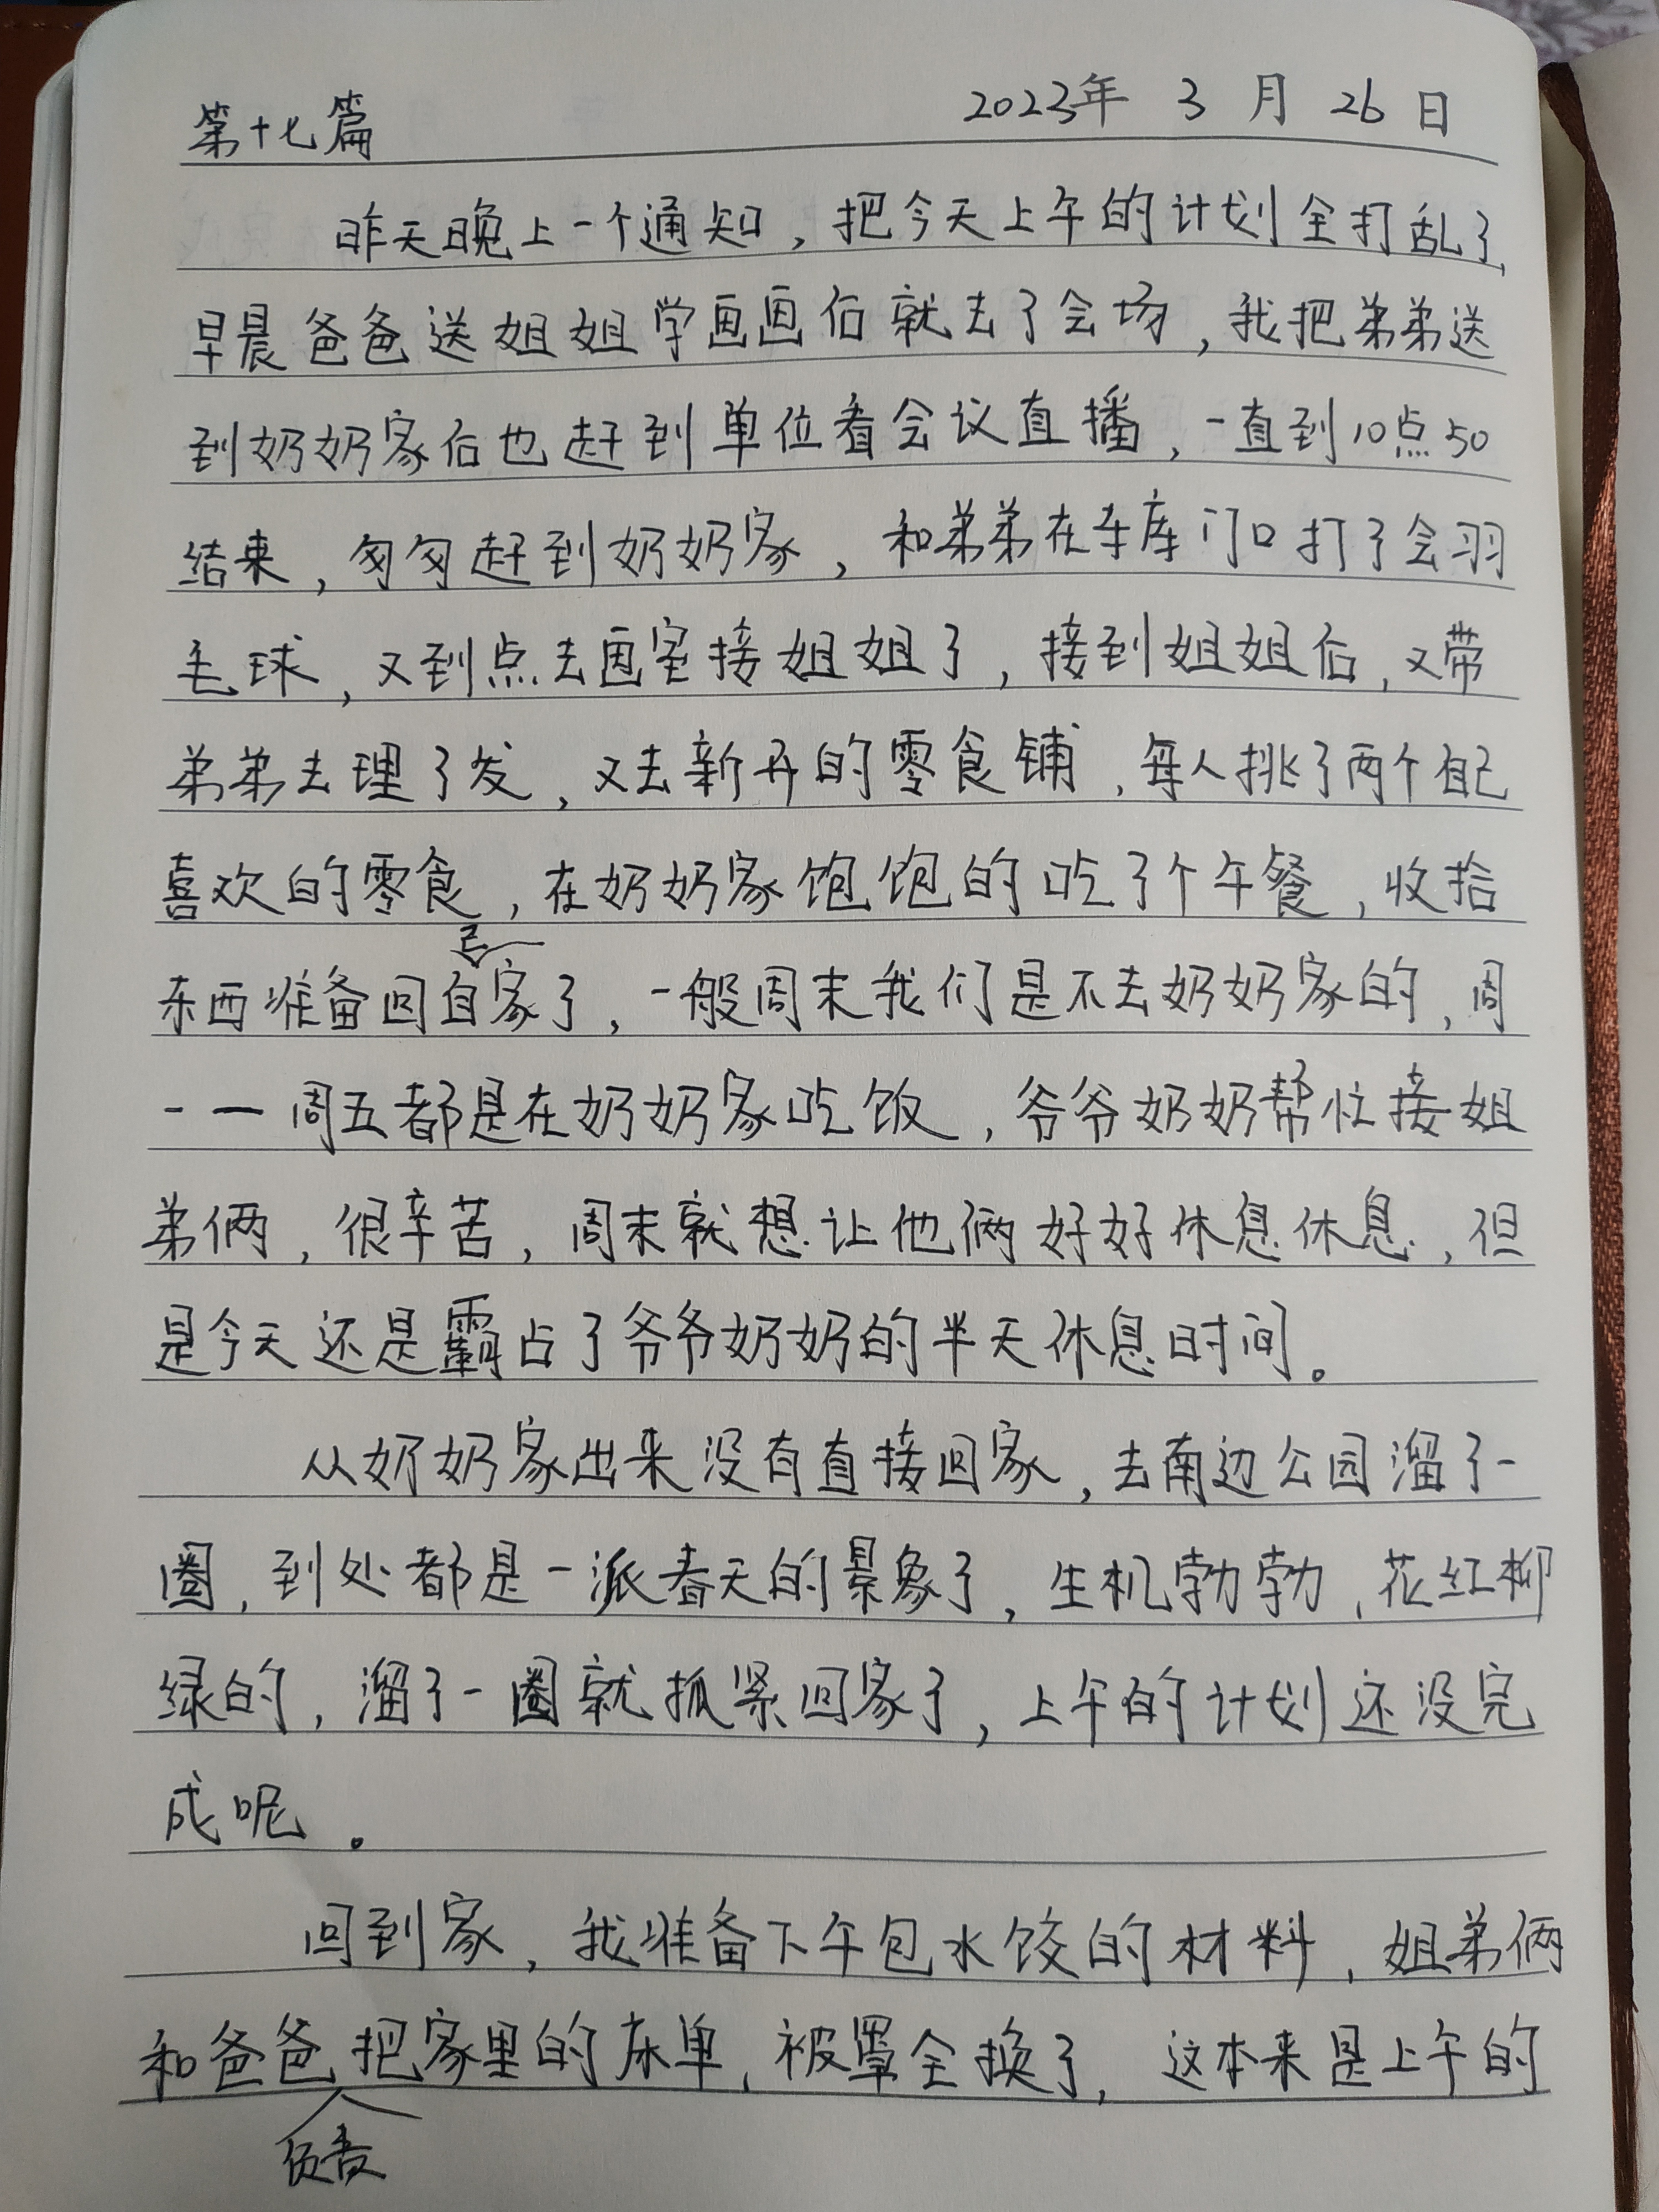 第十七篇 2023年 3 月 26 日
昨天晚上一个通知，把今天上午的计划全打乱了，
早晨爸爸送姐姐学画画后就去了会场，我把弟弟送
到奶奶家后也赶到单位看会议直播，一直到10点50
结束，匆匆赶到奶奶家，和弟弟在车库门口打了会羽
毛球，又到点去画室接姐姐了，接到姐姐后，又带
弟弟去理了发，又去新开的零食铺，每人挑了两个自己
喜欢的零食，在奶奶家饱饱的吃了个午餐，收拾
东西准备回自己家了，一般周末我们是不去奶奶家的，周
一一周五都是在奶奶家吃饭，爷爷奶奶帮忙接姐
弟俩，很辛苦，周末就想让他俩好好休息休息，但
是今天还是霸占了爷爷奶奶的半天休息时间。
从奶奶家出来没有直接回家，去南边公园溜了一
圈，到处都是一派春天的景象了，生机勃勃，花红柳
绿的，溜了一圈就抓紧回家了，上午的计划还没完
成呢。
回到家，我准备下午包水饺的材料，姐弟俩
和爸爸负责把家里的床单，被罩全换了，这本来是上午的